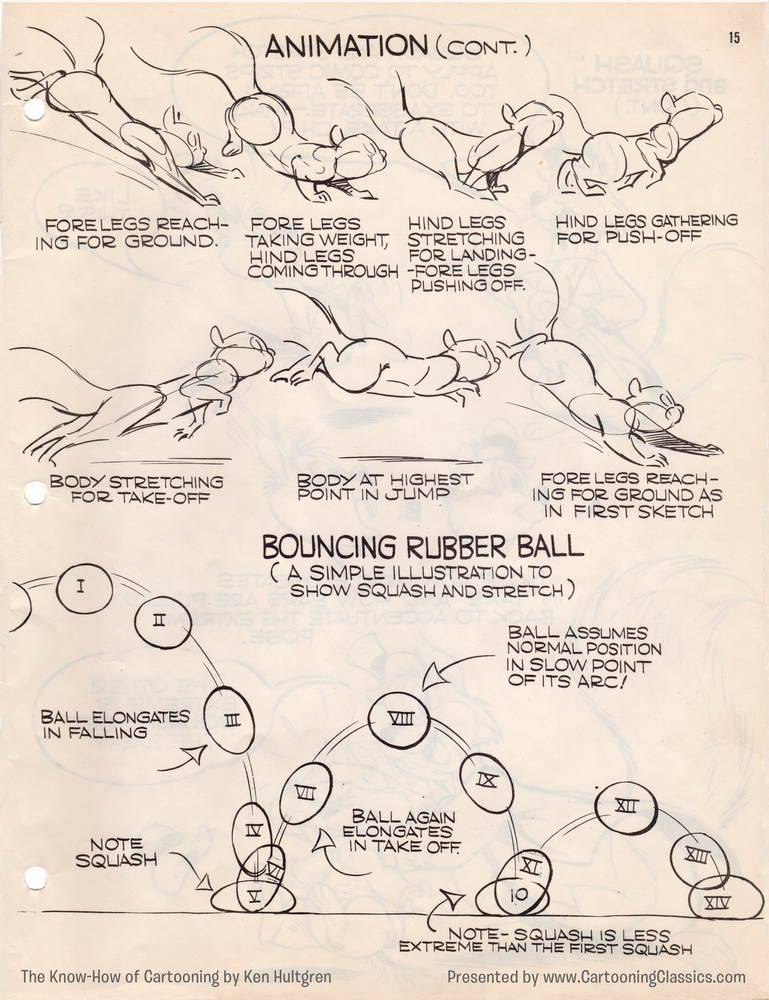 ANIMATION (CONT.)
15
FORELEGS REACH-
ING FOR GROUND.
FORE LEGS
TAKING WEIGHT,
HIND LEGS
COMING THROUGH
HIND LEGS
STRETCHING
FOR LANDING-
-FORE LEGS
PUSHING OFF.
HIND LEGS GATHERING
FOR PUSH-OFF
BODY STRETCHING
FOR TAKE-OFF
BODY AT HIGHEST
POINT IN JUMP
FORE LEGS REACH-
ING FOR GROUND AS
IN FIRST SKETCH
BOUNCING RUBBER BALL
(A SIMPLE ILLUSTRATION TO
SHOW SQUASH AND STRETCH)
I
II
BALL ASSUMES
NORMAL POSITION
IN SLOW POINT
OF ITS ARC!
BALL ELONGATES
IN FALLING
III
VIII
VII
IX
XII
BALL AGAIN
ELONGATES
IN TAKE OFF.
IV
NOTE
SQUASH
VI
V
XI
10
XIII
XIV
NOTE- SQUASH IS LESS
EXTREME THAN THE FIRST SQUASH
The Know-How of Cartooning by Ken Hultgren
Presented by www.CartooningClassics.com